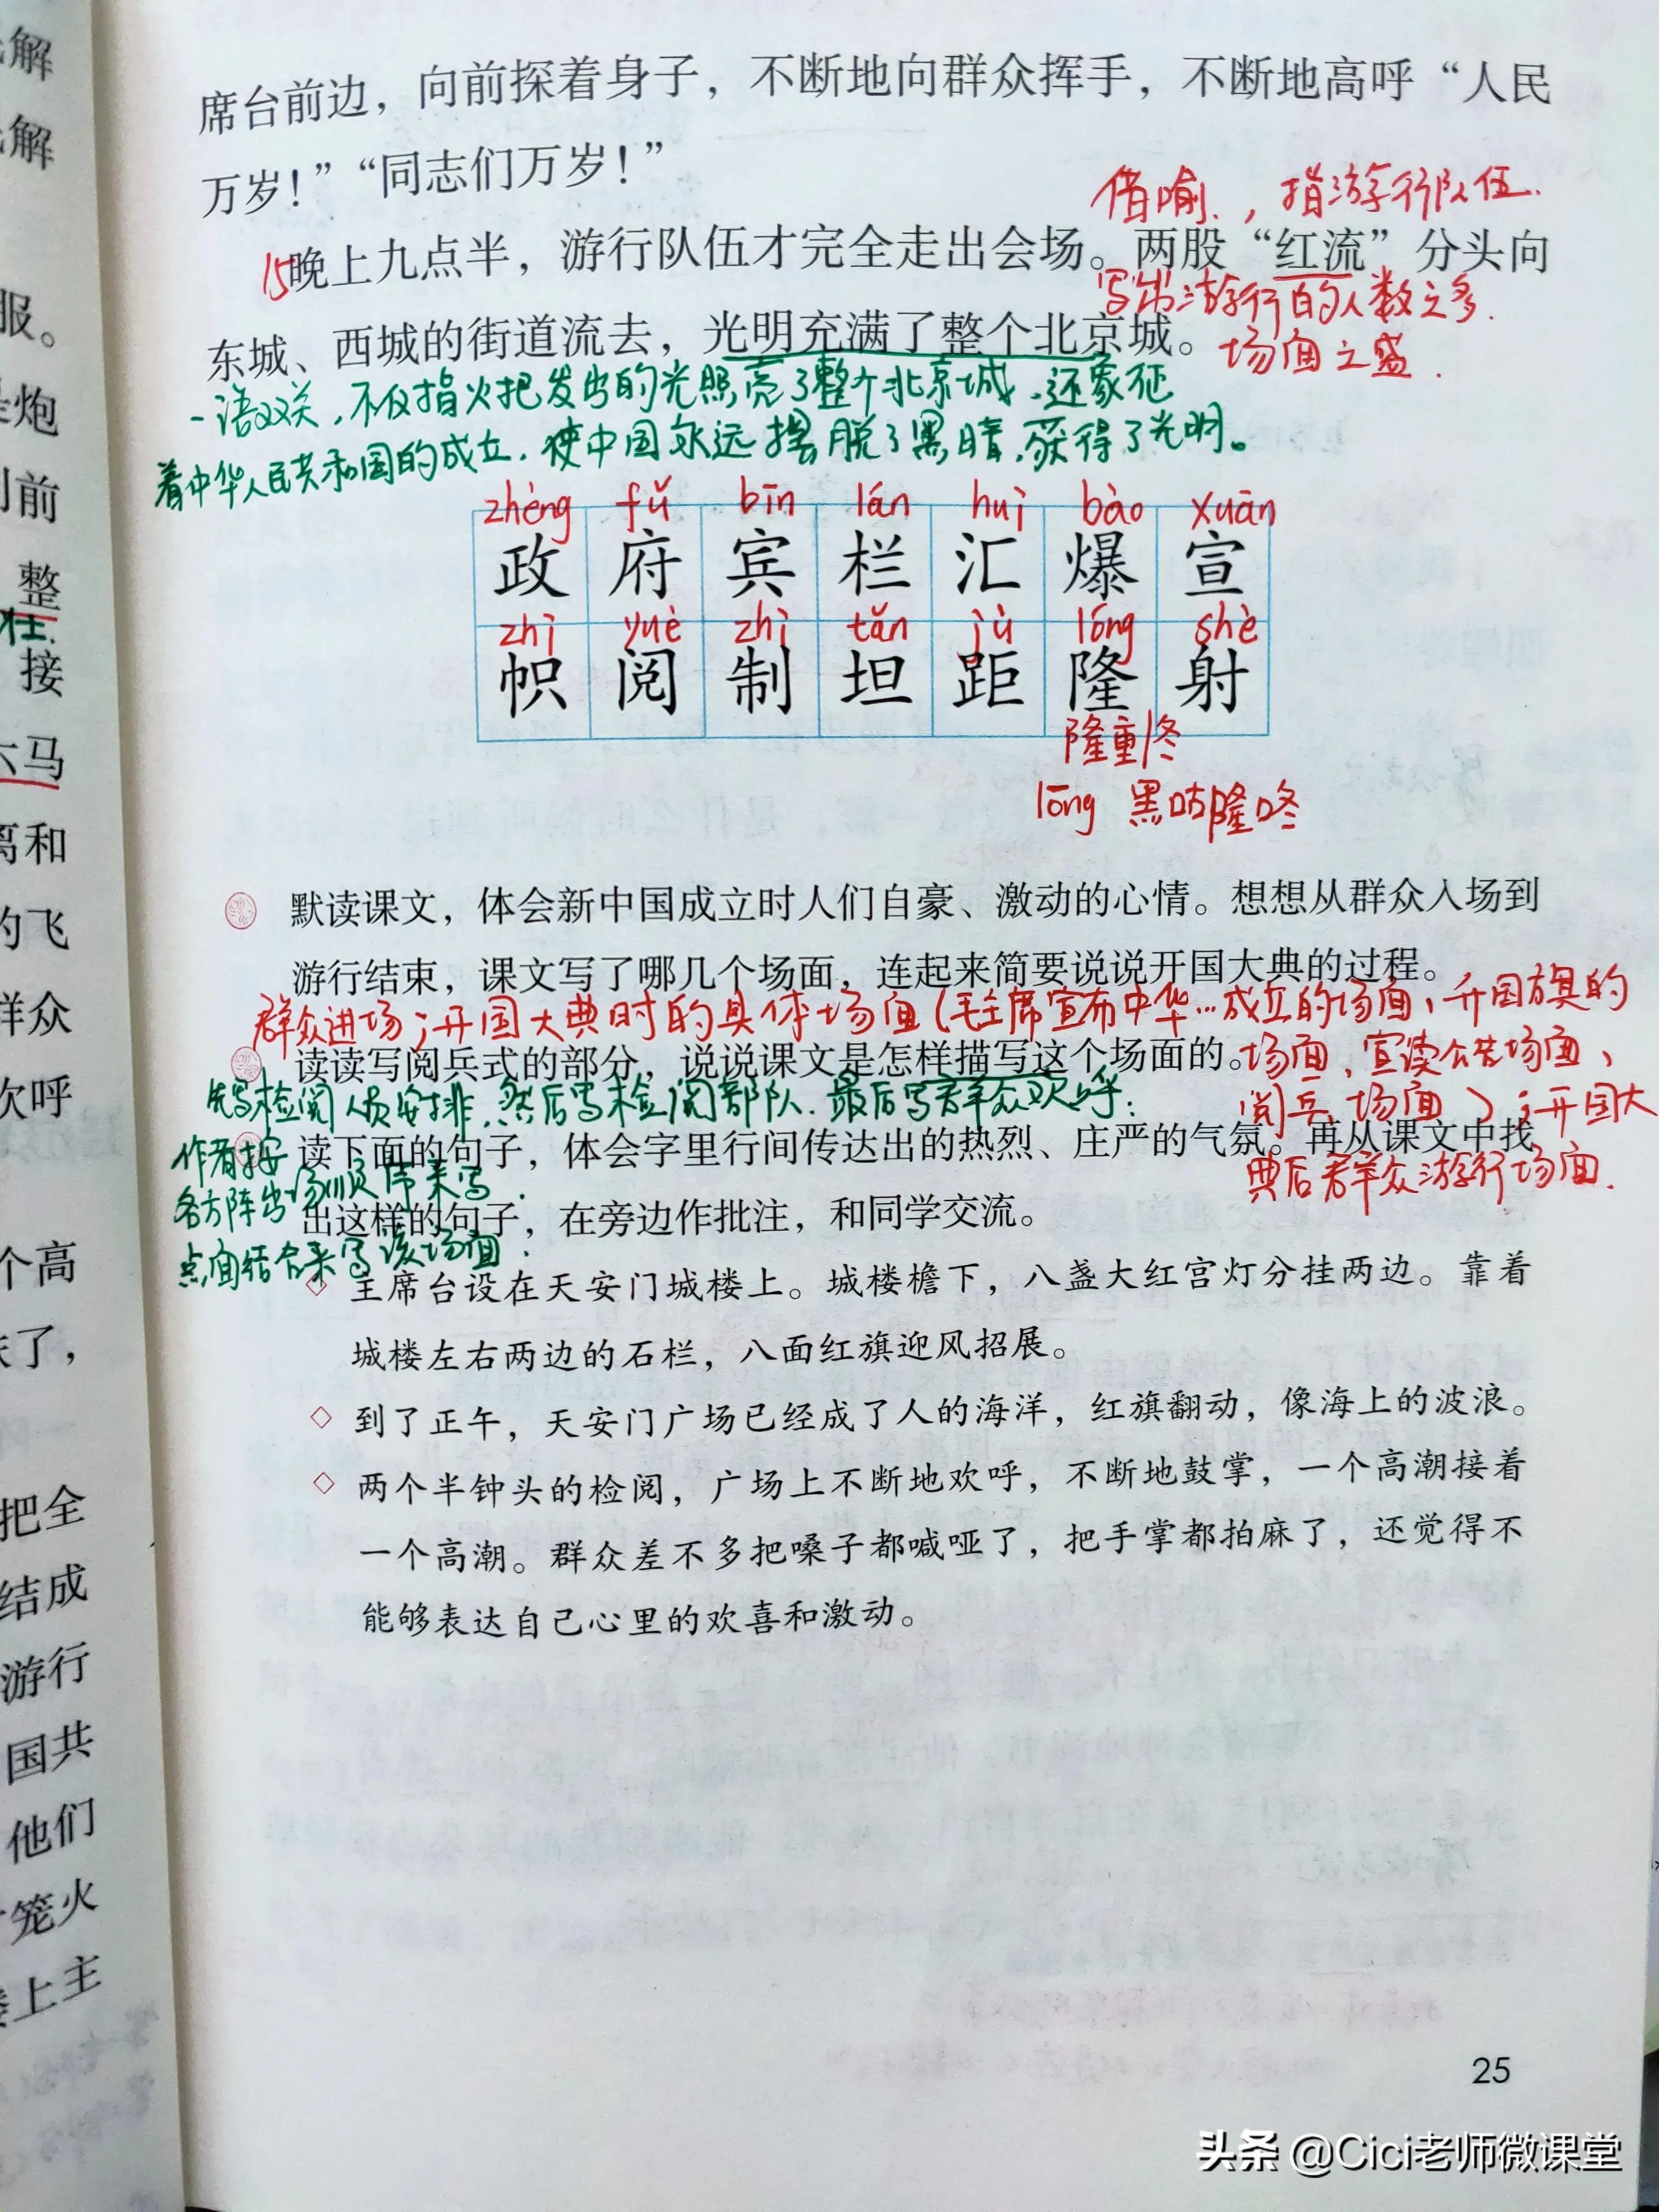 解
解
服。
炮
前
整
接
马
离和
的飞
群众
欢呼
个高
了，
把全
结成
游行
国共
他们
笼火
楼上主
席台前边，向前探着身子，不断地向群众挥手，不断地高呼“人民
万岁！”“同志们万岁！”
借喻，指游行队伍.
15晚上九点半，游行队伍才完全走出会场。两股“红流”分头向
写出游行的人数之多.
东城、西城的街道流去，光明充满了整个北京城。
场面之盛.
一语双关，不仅指火把发出的光照亮了整个北京城.还象征
着中华人民共和国的成立.使中国永远摆脱了黑暗.获得了光明。
zhèng fǔ bīn lán huì bào xuān
政 府 宾 栏 汇 爆 宣
zhì yuè zhì tǎn jù lóng shè
帜 阅 制 坦 距 隆 射
隆重
lōng 黑咕隆咚
默读课文，体会新中国成立时人们自豪、激动的心情。想想从群众入场到
游行结束，课文写了哪几个场面，连起来简要说说开国大典的过程。
群众进场；开国大典时的具体场面（毛主席宣布中华…成立的场面、升国旗的
场面、宣读公告场面、
阅兵场面）；开国大
典后群众游行场面.
读读写阅兵式的部分，说说课文是怎样描写这个场面的。
先写检阅人员安排，然后写检阅部队.最后写群众欢呼;
作者按
各方阵出场顺序来写.
点面结合来写该场面.
读下面的句子，体会字里行间传达出的热烈、庄严的气氛。再从课文中找
出这样的句子，在旁边作批注，和同学交流。
◇ 主席台设在天安门城楼上。城楼檐下，八盏大红宫灯分挂两边。靠着
城楼左右两边的石栏，八面红旗迎风招展。
◇ 到了正午，天安门广场已经成了人的海洋，红旗翻动，像海上的波浪。
◇ 两个半钟头的检阅，广场上不断地欢呼，不断地鼓掌，一个高潮接着
一个高潮。群众差不多把嗓子都喊哑了，把手掌都拍麻了，还觉得不
能够表达自己心里的欢喜和激动。
25
头条 @Cici老师微课堂